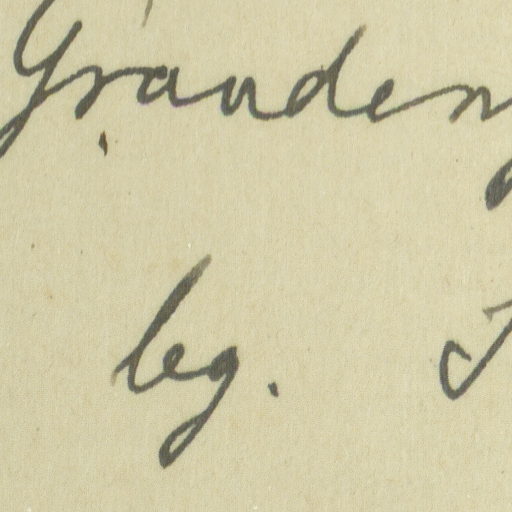 Graudenz
leg. J